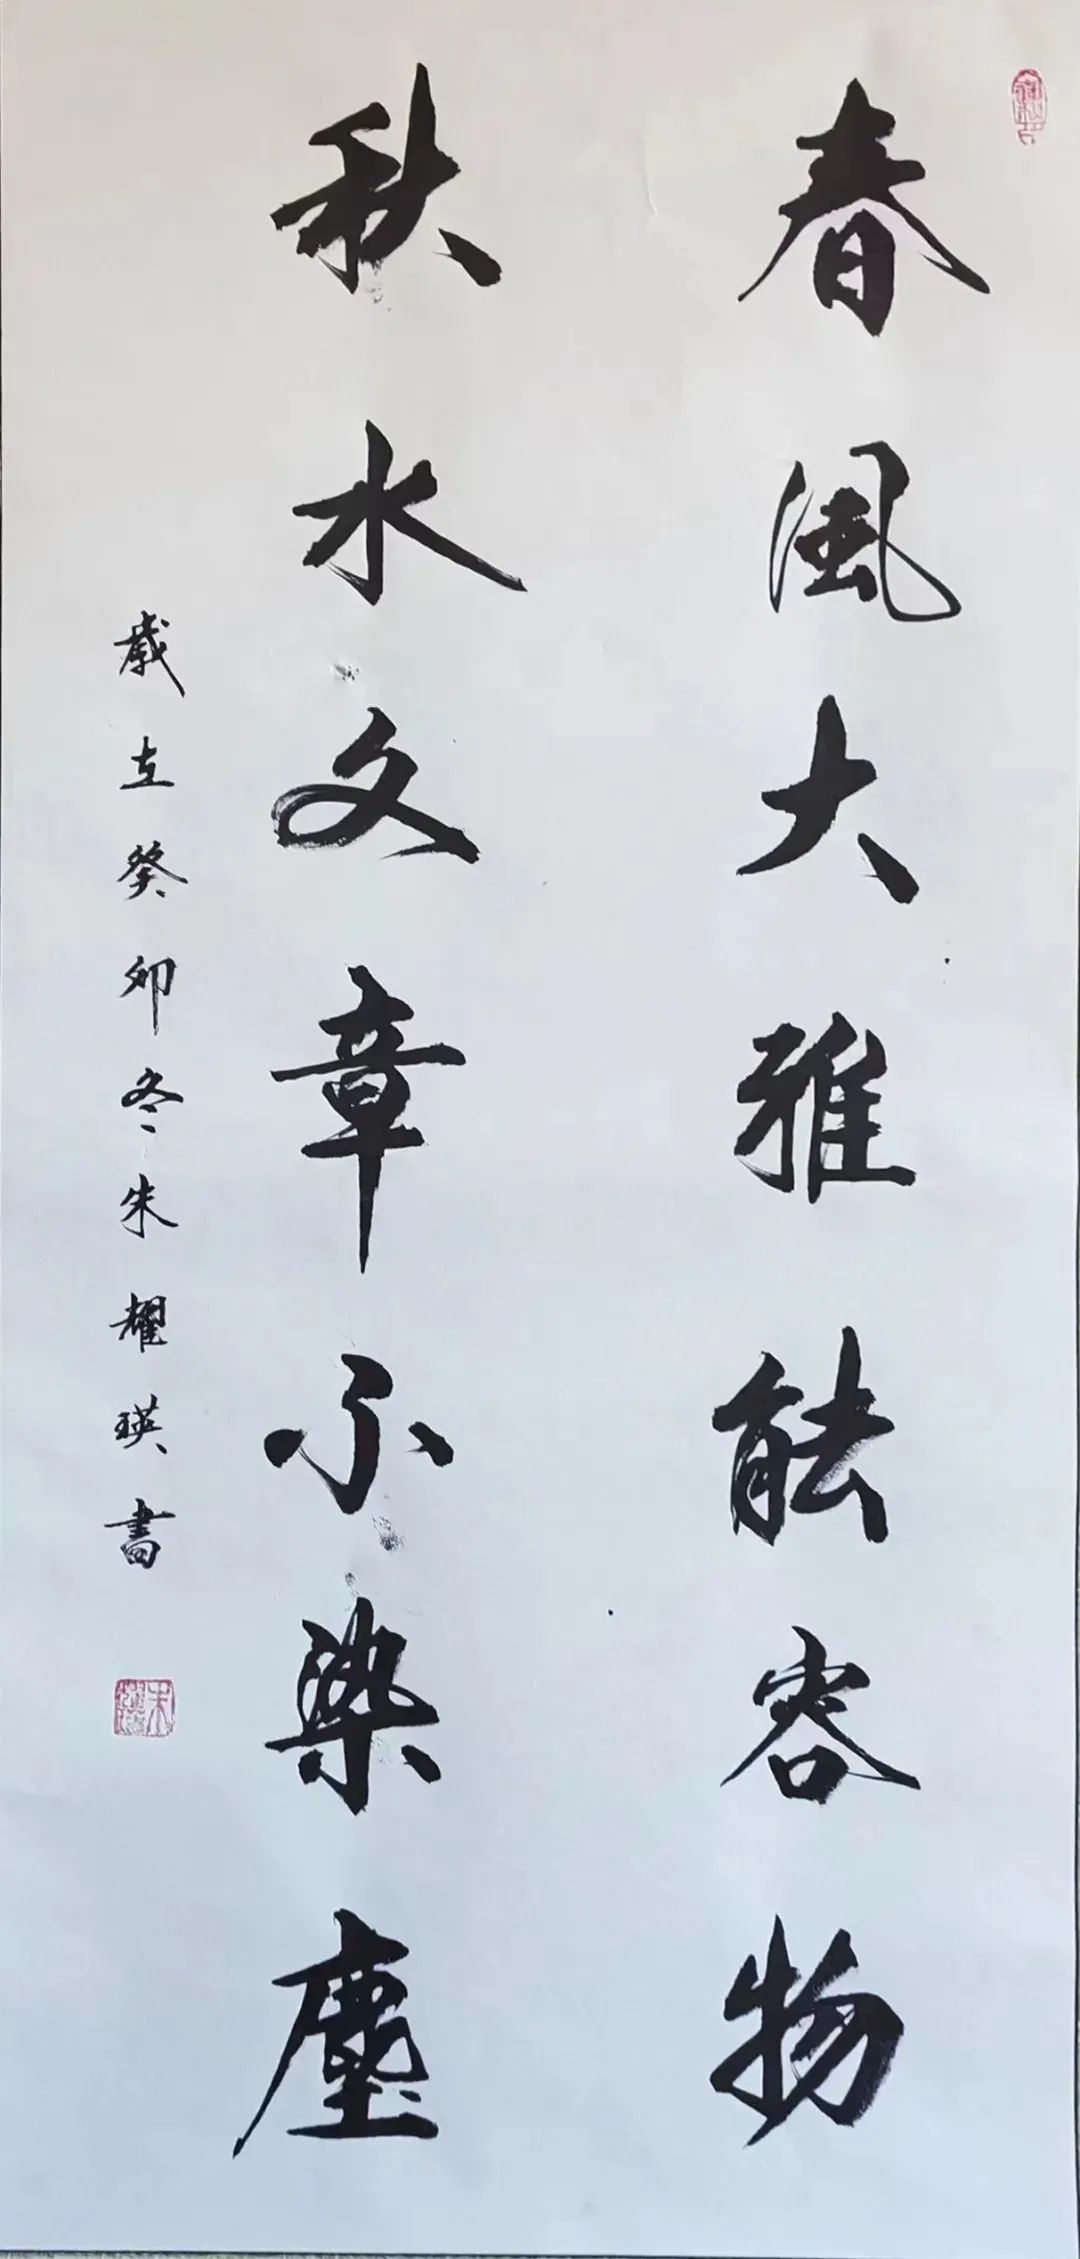 春風大雅能容物
秋水文章不染塵
歲在癸卯冬朱耀瑛書